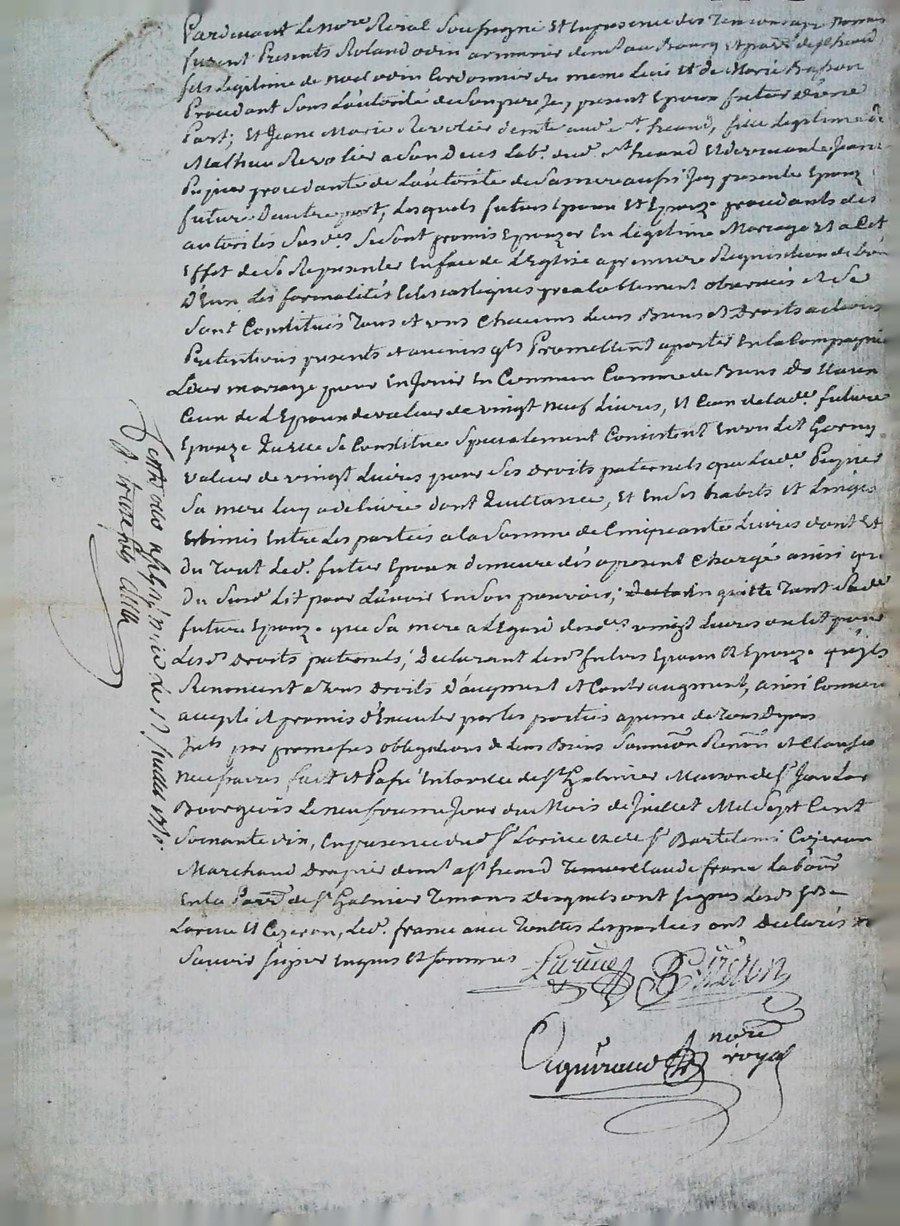 Pardevant Le nore Roial Soussigné Et en presence des Temoins apr. Nommés
furent Presents Roland odin armurier demt au Bourg Et parre de st heand
fils Legitime de noel odin Cordonnier du meme Lieu Et de Marie Basson
Procedant Sous L'autorité de Son pere Jcy present Epoux futur d'une
Part; Et Jeane Marie Revolier demte aud. st. heand, fille Legitime de
Mathieu Revolier a Son deces Lab. dud. st heand Et de vivante Jeane
Peynier procedante de L'autorité de Sa mere aussi Jcy presente Epouze
future D'autre part, Lesquels futurs Epoux Et Epouze procedants des
autorités Susdes Se Sont promis Epouzer En Legitime Mariage Et a Cet
Effet de Se Representer En face de L'Eglise a premiere Requisition de L'un
D'Eux Les formalités Eclesiastiques prealablement observées et Se
Sont Constitués Tous et uns Chacuns Leurs Biens Et Droits actions
Pretentions presents et avenirs qls Promettent aporter En La Compagnie
Leur mariage pour En Jouir En Commun Comme de Biens
Ceux de L'Epoux de valeur de vingt neuf Livres, Et Ceux de lade. future
Epouze Qu'elle Se Constitue Specialement Consistent En un Lit Garny
valeur de vingt Livres pour Ses Droits paternels que Lade. Peynier
Sa mere Luy a delivré dont Quittance, Et En Ses habits et Linges
Estimés Entre Les parties a la Somme de Cinquante Livres dont Et
Du Tout Led. futur Epoux demeure dés apresent Chargé ainsi que
Du Susd. Lit pour L'avoir En Son pouvoir, En quitte Tant Sade
future Epouze que Sa mere a L'Egard desdes vingt Livres ou Lit pour
Lesds Droits paternels; Declarant Lesds futurs Epoux Et Epouze qu'ils
Renoncent a Tous Droits D'augment Et Contraugment, ainsi Convenu
accepté et promis d'Executer par Les parties a peine de Tous Depens
par promesses obligations de Leurs Biens Soumion Renon et Clauses
necessaires fait et Passé En La ville de st Galmier Maison de sr Jean
Bourgeois Le neufvieme Jour du Mois de Juillet Mil Sept Cent
Soixante dix, En presence dud. sr Larive Et de sr Bartelemi Cizeron
Marchand Drapier demt a st heand Temoins Claude france Laboureur
En La Parre de st Galmier Temoins Desquels ont Signés Lesds srs
Larive Et Cizeron, Led. france avec Toutes Les parties ont Declarés ne
Savoir Signer Enquis Et Sommés
Larive B Cizeron
nore
royal